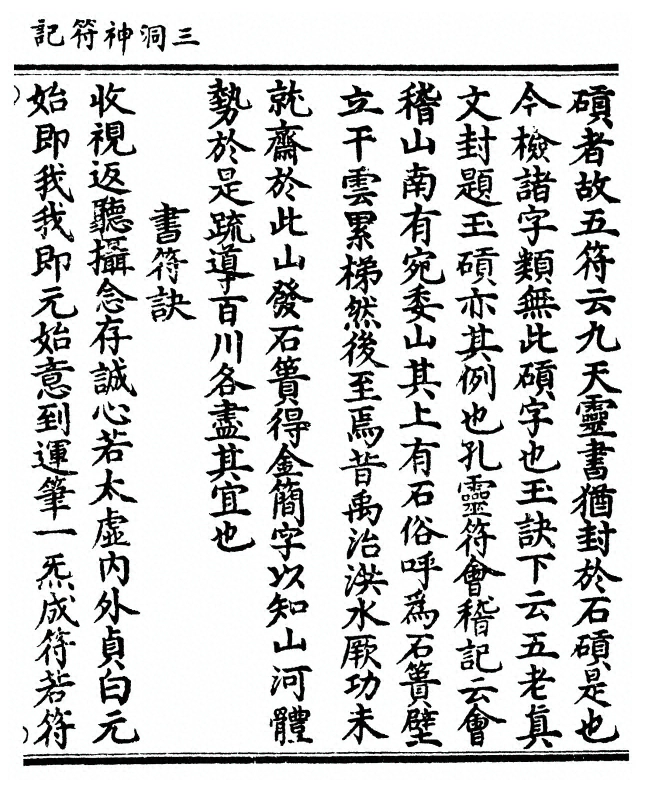 三洞神符記
碩者故五符云九天靈書猶封於石碩是也
今檢諸字類無此碩字也玉訣下云五老真
文封題玉碩亦其例也孔靈符會稽記云會
稽山南有宛委山其上有石俗呼為石簣壁
立干雲累梯然後至焉昔禹治洪水厥功未
就齋於此山發石簣得金簡字以知山河體
勢於是疏導百川各盡其宜也
書符訣
收視返聽攝念存誠心若太虛內外貞白元
始即我我即元始意到運筆一炁成符若符